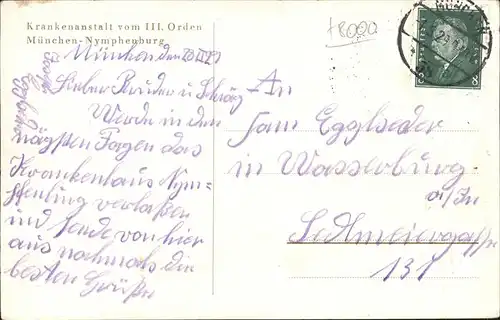 Krankenanstalt vom III. Orden
München-Nymphenburg
München den
Lieber Bruder u Schwäg
Werde in den
nägsten Tagen das
Krankenhaus Nym-
phenburg verlaßen
und sende von hier
aus nochmals die
besten Grüße
+8000
MÜNCHEN
8
An
Fam Egglseder
in Wasserburg
a/Inn
Ledlmeiergasse
131